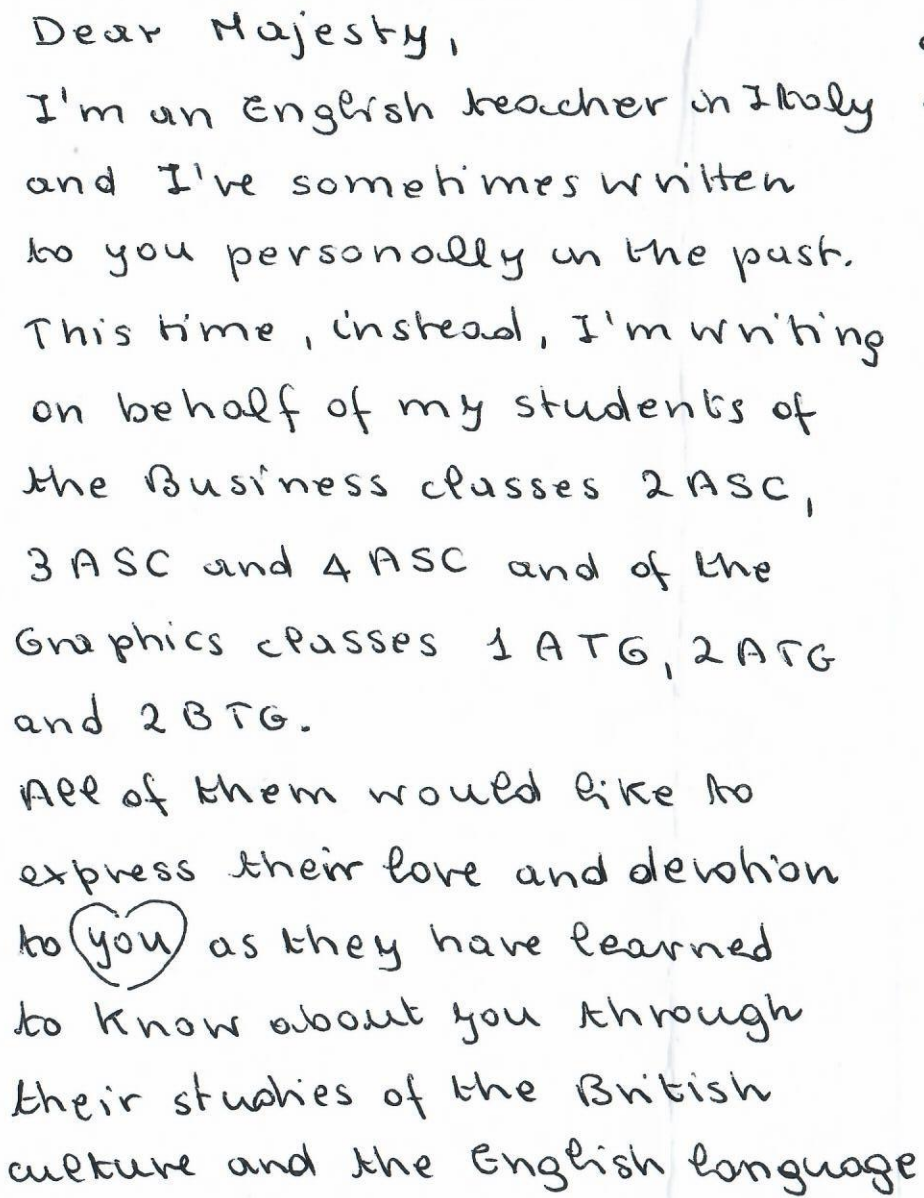 Dear Majesty,
I'm an English teacher in Italy
and I've sometimes written
to you personally in the past.
This time, instead, I'm writing
on behalf of my students of
the Business classes 2ASC,
3ASC and 4ASC and of the
Graphics classes 1ATG, 2ATG
and 2BTG.
All of them would like to
express their love and devotion
to you as they have learned
to know about you through
their studies of the British
culture and the English language